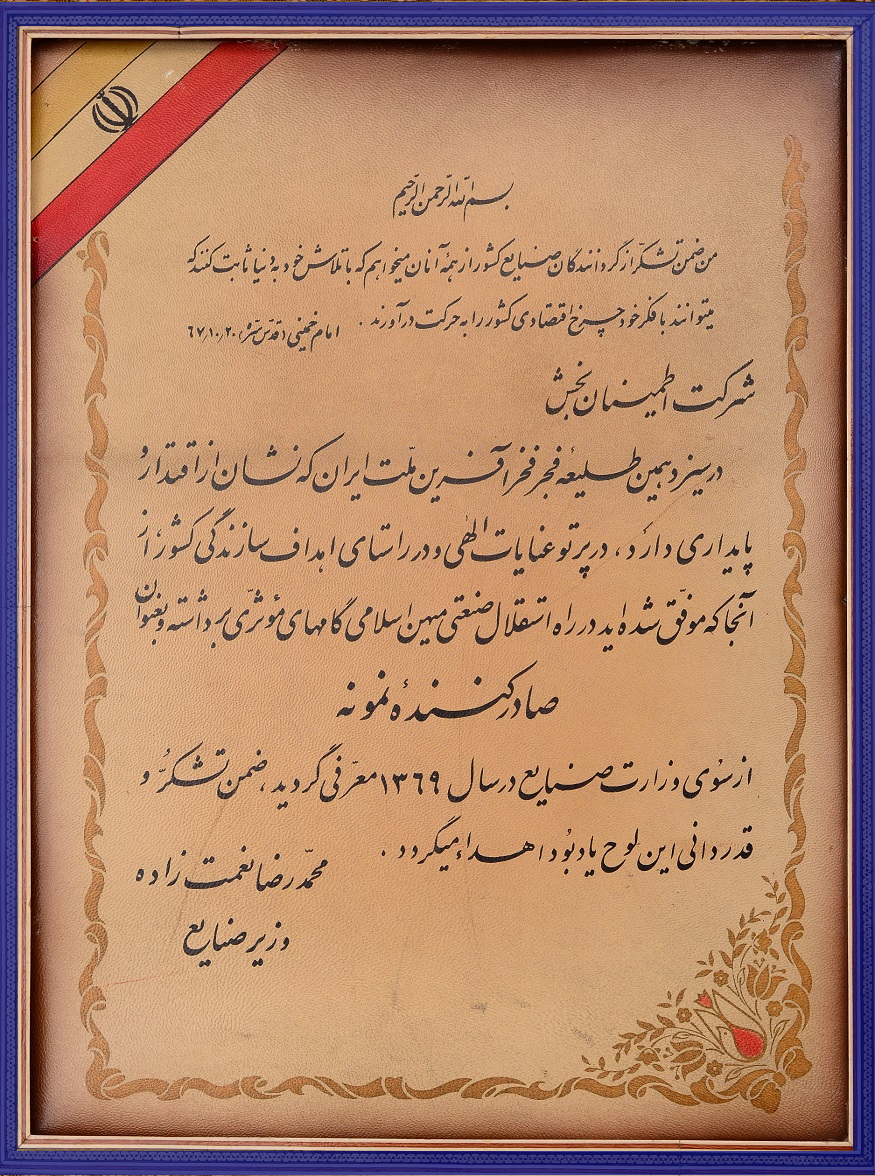 بسم الله الرحمن الرحیم
من ضمن تشکر از گردانندگان صنایع کشور از همهٔ آنان میخواهم که با تلاش خود به دنیا ثابت کنند که
میتوانند با فکر خود چرخ اقتصادی کشور را به حرکت درآورند . امام خمینی (قدّس سرّه) ۶۷٫۱۰٫۲۰
شرکت اطمینان بخش
در سیزدهمین طلیعهٔ فجر فخرآفرین ملّت ایران که نشان از اقتدار و
پایداری دارد ، در پرتو عنایات الهی و در راستای اهداف سازندگی کشور ، از
آنجا که موفّق شده اید در راه استقلال صنعتی میهن اسلامی گامهای مؤثّری برداشته و بعنوان
صادرکنندهٔ نمونه
از سوی وزارت صنایع در سال ۱۳۶۹ معرّفی گردید ، ضمن تشکّر و
قدردانی این لوح یادبود اهداء میگردد .
محمّدرضا نعمت زاده
وزیر صنایع